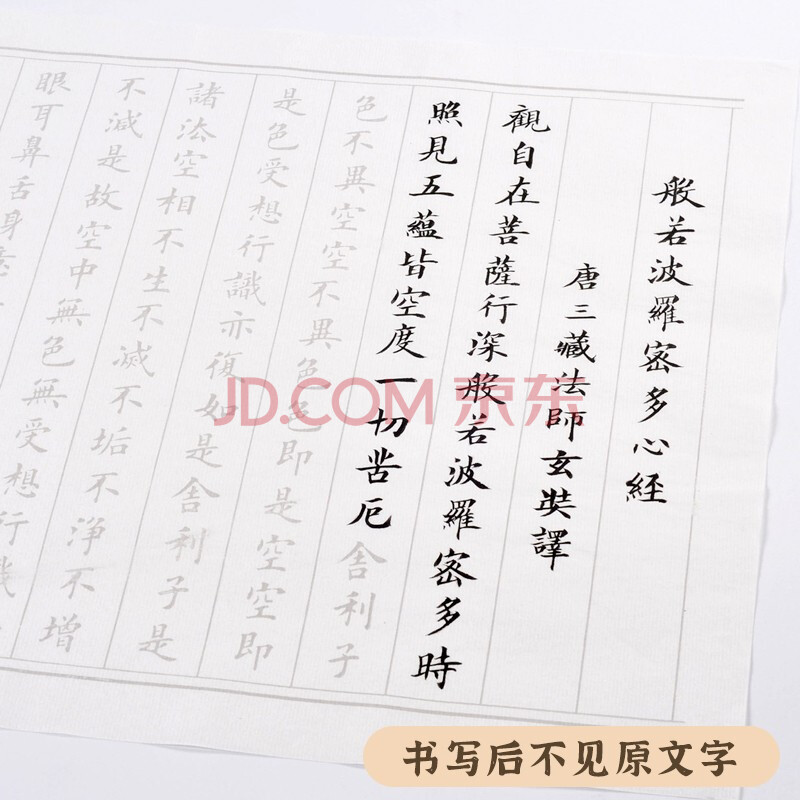 般若波羅密多心經
唐三藏法師玄奘譯
觀自在菩薩行深般若波羅密多時
照見五蘊皆空度一切苦厄舍利子
色不異空空不異色色即是空空即
是色受想行識亦復如是舍利子是
諸法空相不生不滅不垢不淨不增
不減是故空中無色無受想行識
眼耳鼻舌身意
JD.COM 京东
书写后不见原文字